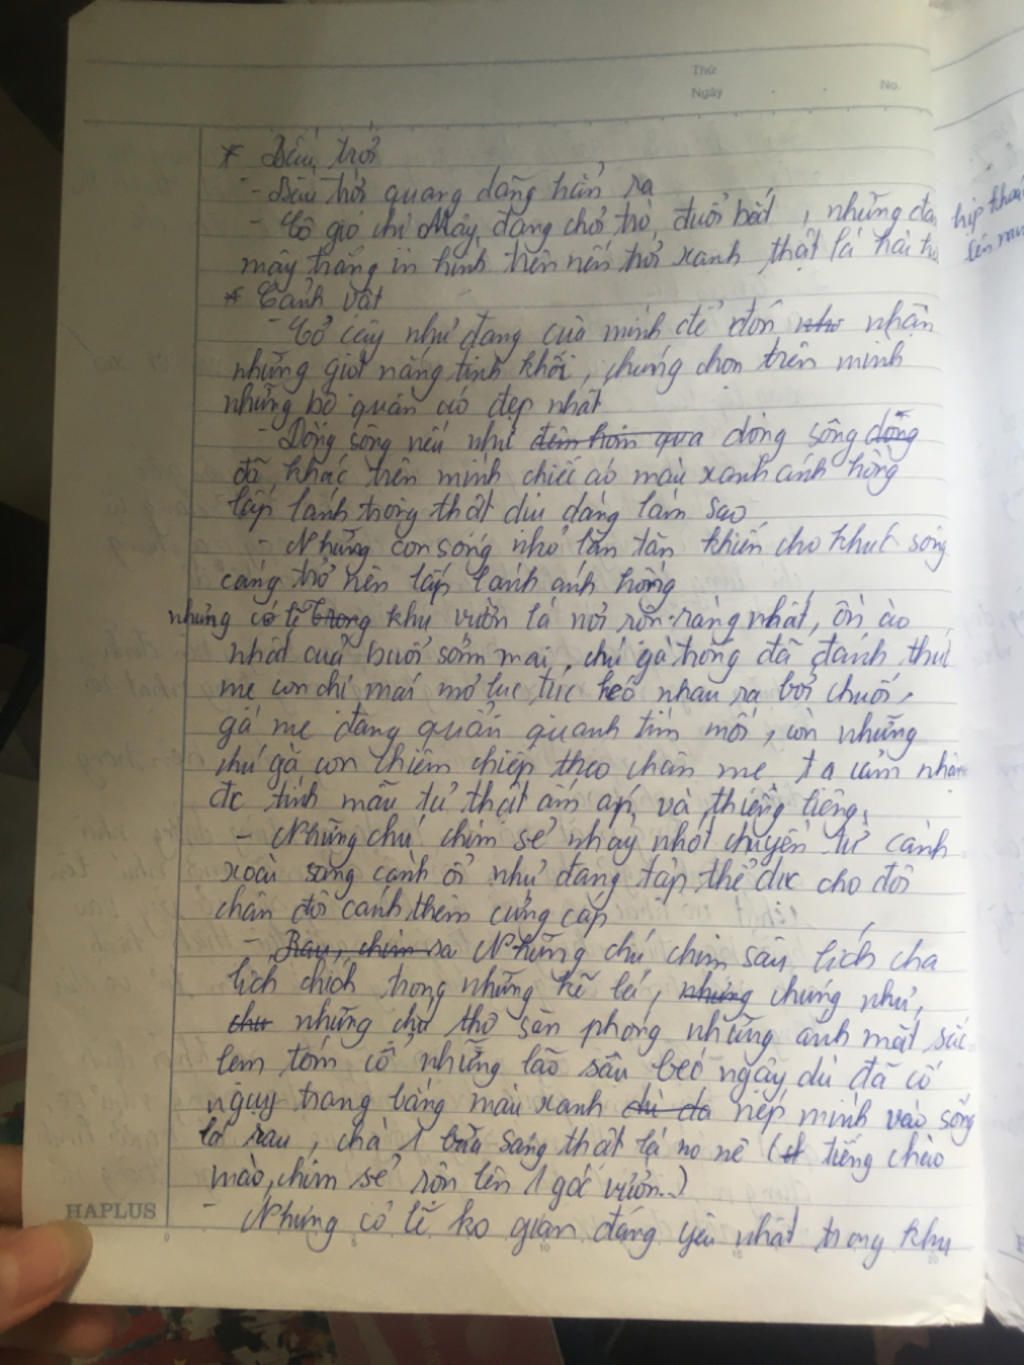 Thứ
Ngày No.
* Bầu trời
- Bầu trời quang đãng hẳn ra
- Cô gió chị Mây đang chơi trò đuổi bắt, những đá
mây trắng in hình trên nền trời xanh thật là hài
* Cảnh vật
- Cỏ cây như đang cựa mình để đón như nhận
những giọt nắng tinh khôi, chúng chọn trên mình
những bộ quần áo đẹp nhất
- Dòng sông nếu như đêm hôm qua dòng sông dòng
đã khác trên mình chiếc áo màu xanh ánh hồng
lấp lánh trông thật dịu dàng làm sao
- Những con sóng nhỏ lăn tăn khiến cho khúc sông
càng trở nên lấp lánh ánh hồng
nhưng có lẽ trong khu vườn là nơi rộn ràng nhất, ồn ào
nhất của buổi sớm mai, chú gà trống đã đánh thức
mẹ con chị mái mơ tục tục kéo nhau ra bới chuối,
gà mẹ đang quẩn quanh tìm mồi, còn những
chú gà con thiêm chiếp theo chân mẹ ta cảm nhận
đc tình mẫu tử thật ấm áp và thiêng liêng.
- Những chú chim sẻ nhảy nhót chuyền từ cành
xoài sang cành ổi như đang tập thể dục cho đôi
chân đôi cánh thêm cứng cáp
- Rau, chim sa Những chú chim sâu lích cha
lích chích trong những kẽ lá, nhưng chúng như,
chư những chú thợ săn phóng những ánh mắt sắc
lem tóm cổ những lão sâu béo ngậy dù đã có
ngụy trang bằng màu xanh nép mình vào sống
lá rau, chà 1 bữa sáng thật là no nê ( tiếng chào
mào, chim sẻ rộn lên 1 góc vườn..)
- Nhưng có lẽ ko gian đáng yêu nhất trong khu
HAPLUS
0 5 10 15 20